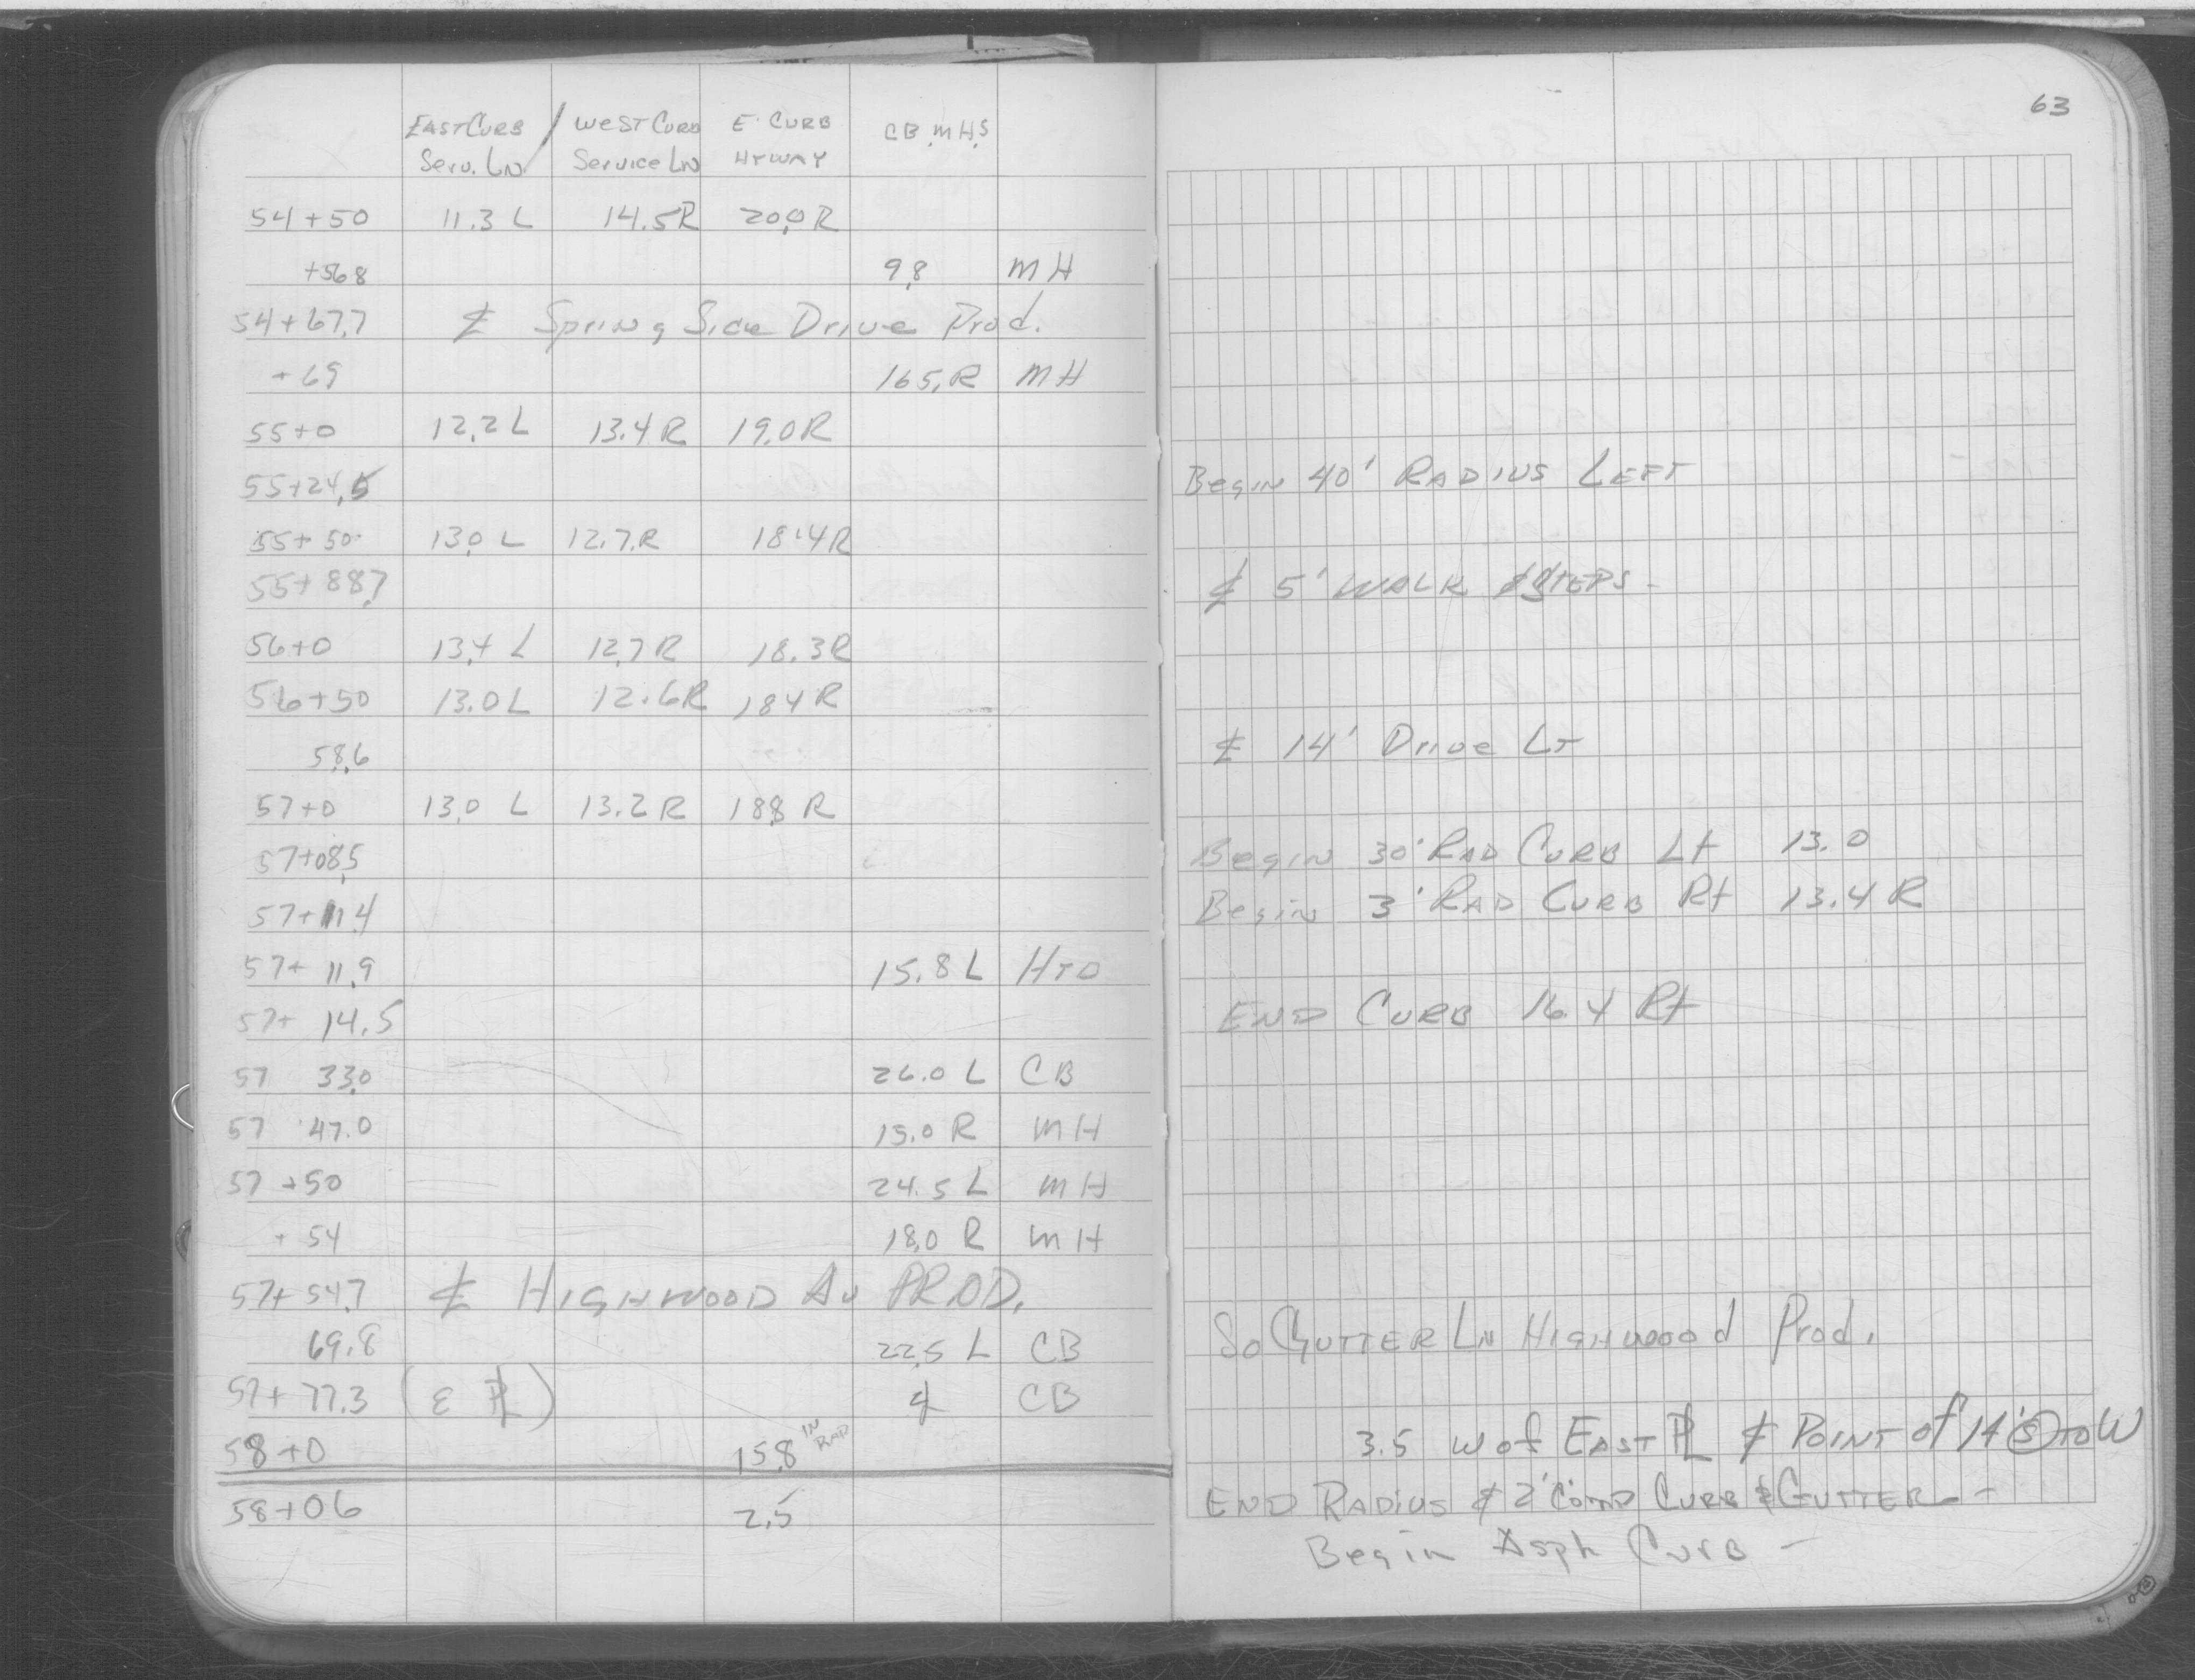 63
EAST CURB / WEST CURB E. CURB CB, MH,S
Serv. LN Service LN HYWAY
54+50 11.3 L 14.5R 20.0 R
+56.8 9.8 MH
54+67.7 ℄ Spring Side Drive Prod.
+69 16.5 R MH
55+0 12.2 L 13.4 R 19.0R
55+24.5 Begin 40' RADIUS LEFT
55+50 13.0 L 12.7 R 18.4R
55+88.7 ℄ 5' WALK & STEPS -
56+0 13.4 L 12.7 R 18.3R
56+50 13.0 L 12.6R 18.4 R
58.6 ℄ 14' Drive LT
57+0 13.0 L 13.2 R 18.8 R
57+08.5 Begin 30' RAD CURB Lt 13.0
57+11.4 Begin 3' RAD CURB Rt 13.4 R
57+ 11.9 15.8 L HYD
57+ 14.5 END CURB 16.4 Rt
57 33.0 26.0 L CB
57 47.0 15.0 R MH
57 +50 24.5 L MH
+ 54 18.0 R MH
57+ 54.7 ℄ HIGHWOOD AV PROD.
69.8 22.5 L CB So GUTTER LN HIGHWOOD Prod.
57+ 77.3 (E PL) ℄ CB
3.5 W of EAST PL ℄ POINT of 14'
58+0 15.8 IN RAD
58+06 2.5 END RADIUS & 2' COMD CURB & GUTTER -
Begin Asph CURB -